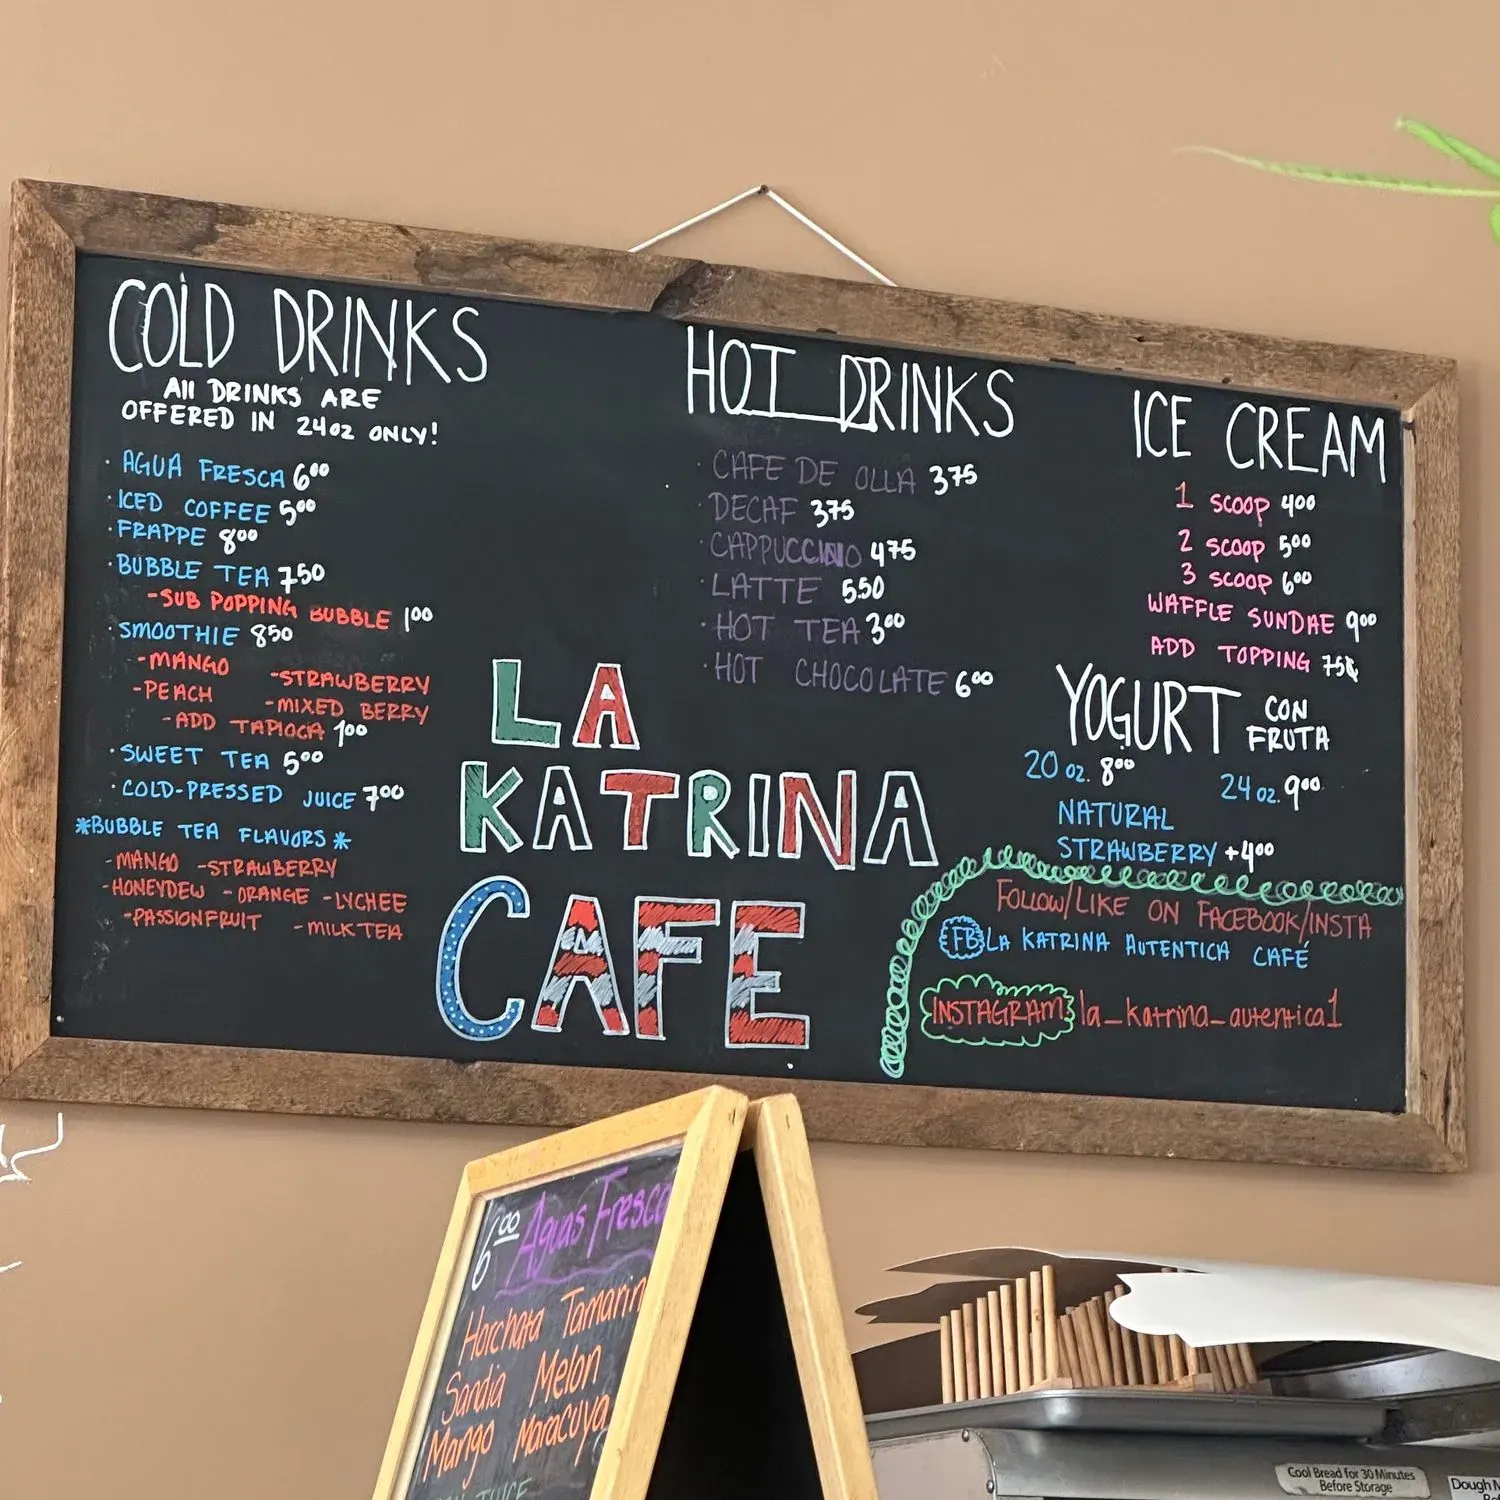 COLD DRINKS
All DRINKS ARE
OFFERED IN 24oz ONLY!
· AGUA FRESCA 6⁰⁰
· ICED COFFEE 5⁰⁰
· FRAPPE 8⁰⁰
· BUBBLE TEA 7⁵⁰
- SUB POPPING BUBBLE 1⁰⁰
· SMOOTHIE 8⁵⁰
- MANGO - STRAWBERRY
- PEACH - MIXED BERRY
- ADD TAPIOCA 1⁰⁰
· SWEET TEA 5⁰⁰
· COLD-PRESSED JUICE 7⁰⁰
*BUBBLE TEA FLAVORS*
- MANGO - STRAWBERRY
- HONEYDEW - ORANGE - LYCHEE
- PASSIONFRUIT - MILK TEA
HOT DRINKS
· CAFE DE OLLA 3⁷⁵
· DECAF 3⁷⁵
· CAPPUCCINO 4⁷⁵
· LATTE 5.50
· HOT TEA 3⁰⁰
· HOT CHOCOLATE 6⁰⁰
LA
KATRINA
CAFE
ICE CREAM
1 SCOOP 4⁰⁰
2 SCOOP 5⁰⁰
3 SCOOP 6⁰⁰
WAFFLE SUNDAE 9⁰⁰
ADD TOPPING 75¢
YOGURT CON
FRUTA
20 oz. 8⁰⁰ 24 oz. 9⁰⁰
NATURAL
STRAWBERRY +4⁰⁰
FOLLOW/LIKE ON FACEBOOK/INSTA
FB LA KATRINA AUTENTICA CAFÉ
INSTAGRAM: la_katrina_autentica1
6⁰⁰ Aguas Fresca
Horchata Tamarin
Sandia Melon
Mango Maracuya
JUICE
Cool Bread for 30 Minutes
Before Storage
Dough